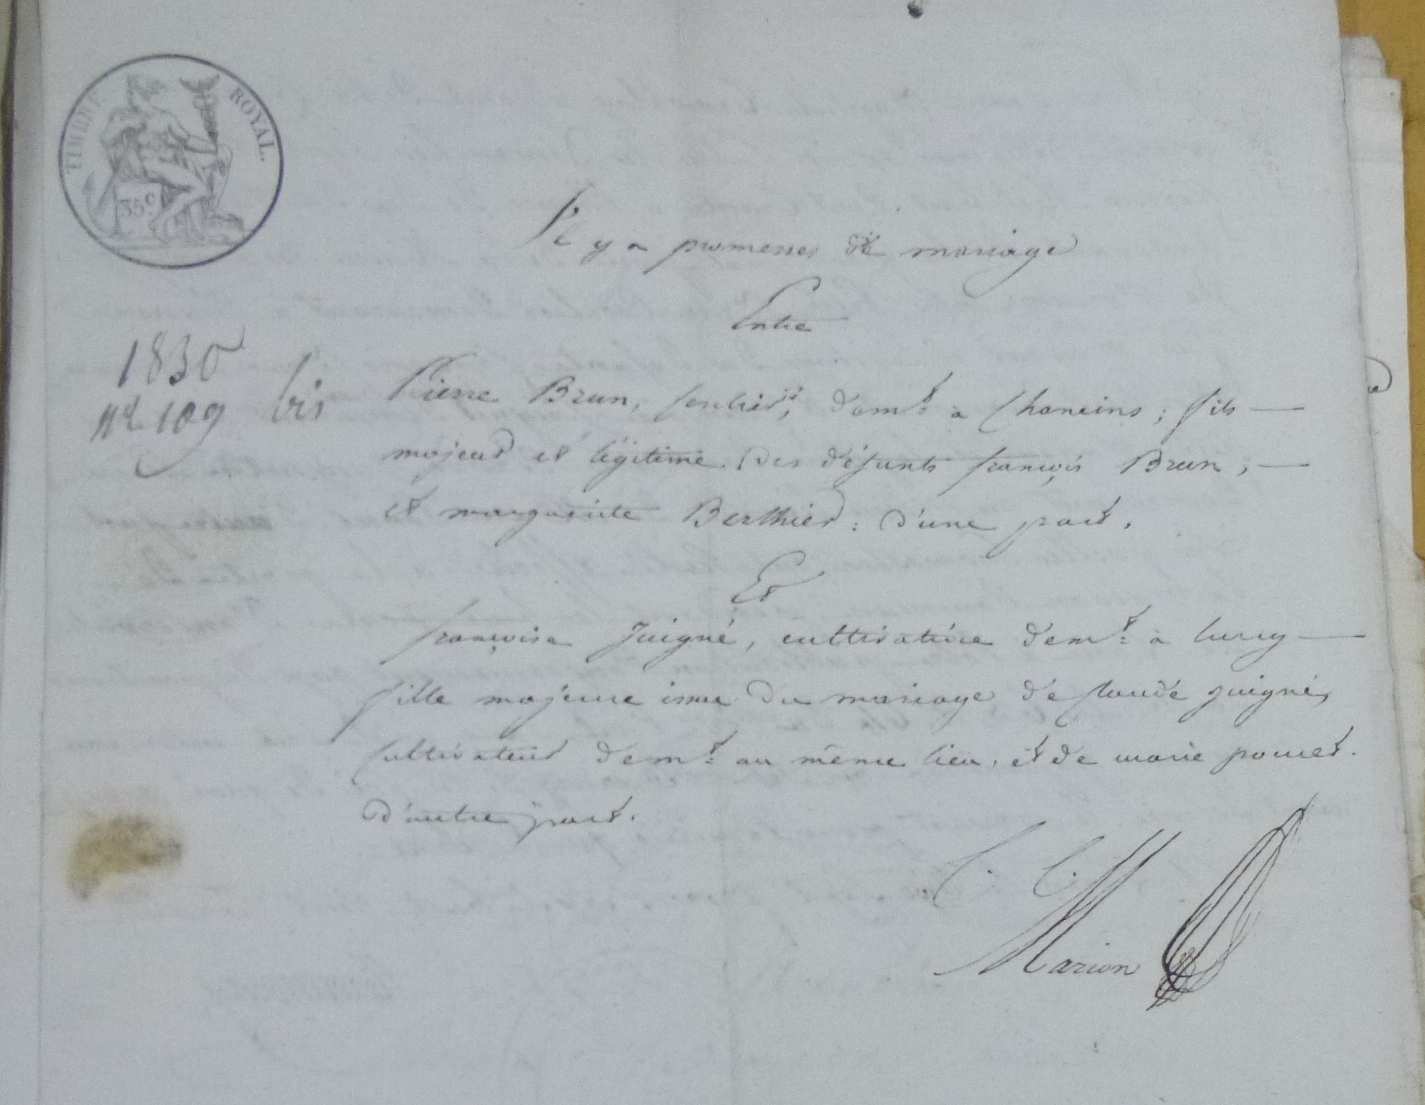 TIMBRE ROYAL.
35 c
Il y a promesses de mariage
Entre
1830
N° 109 bis
Pierre Brun, domt à Chaneins; fils
majeur et légitime des défunts françois Brun,
et marguerite Berthier: d'une part.
Et
françoise Juigné, cultivatrice demt à lurcy
fille majeure issue du mariage de Claude juigné,
Cultivateur demt au même lieu, et de marie
d'autre part.
C. C.
Marion